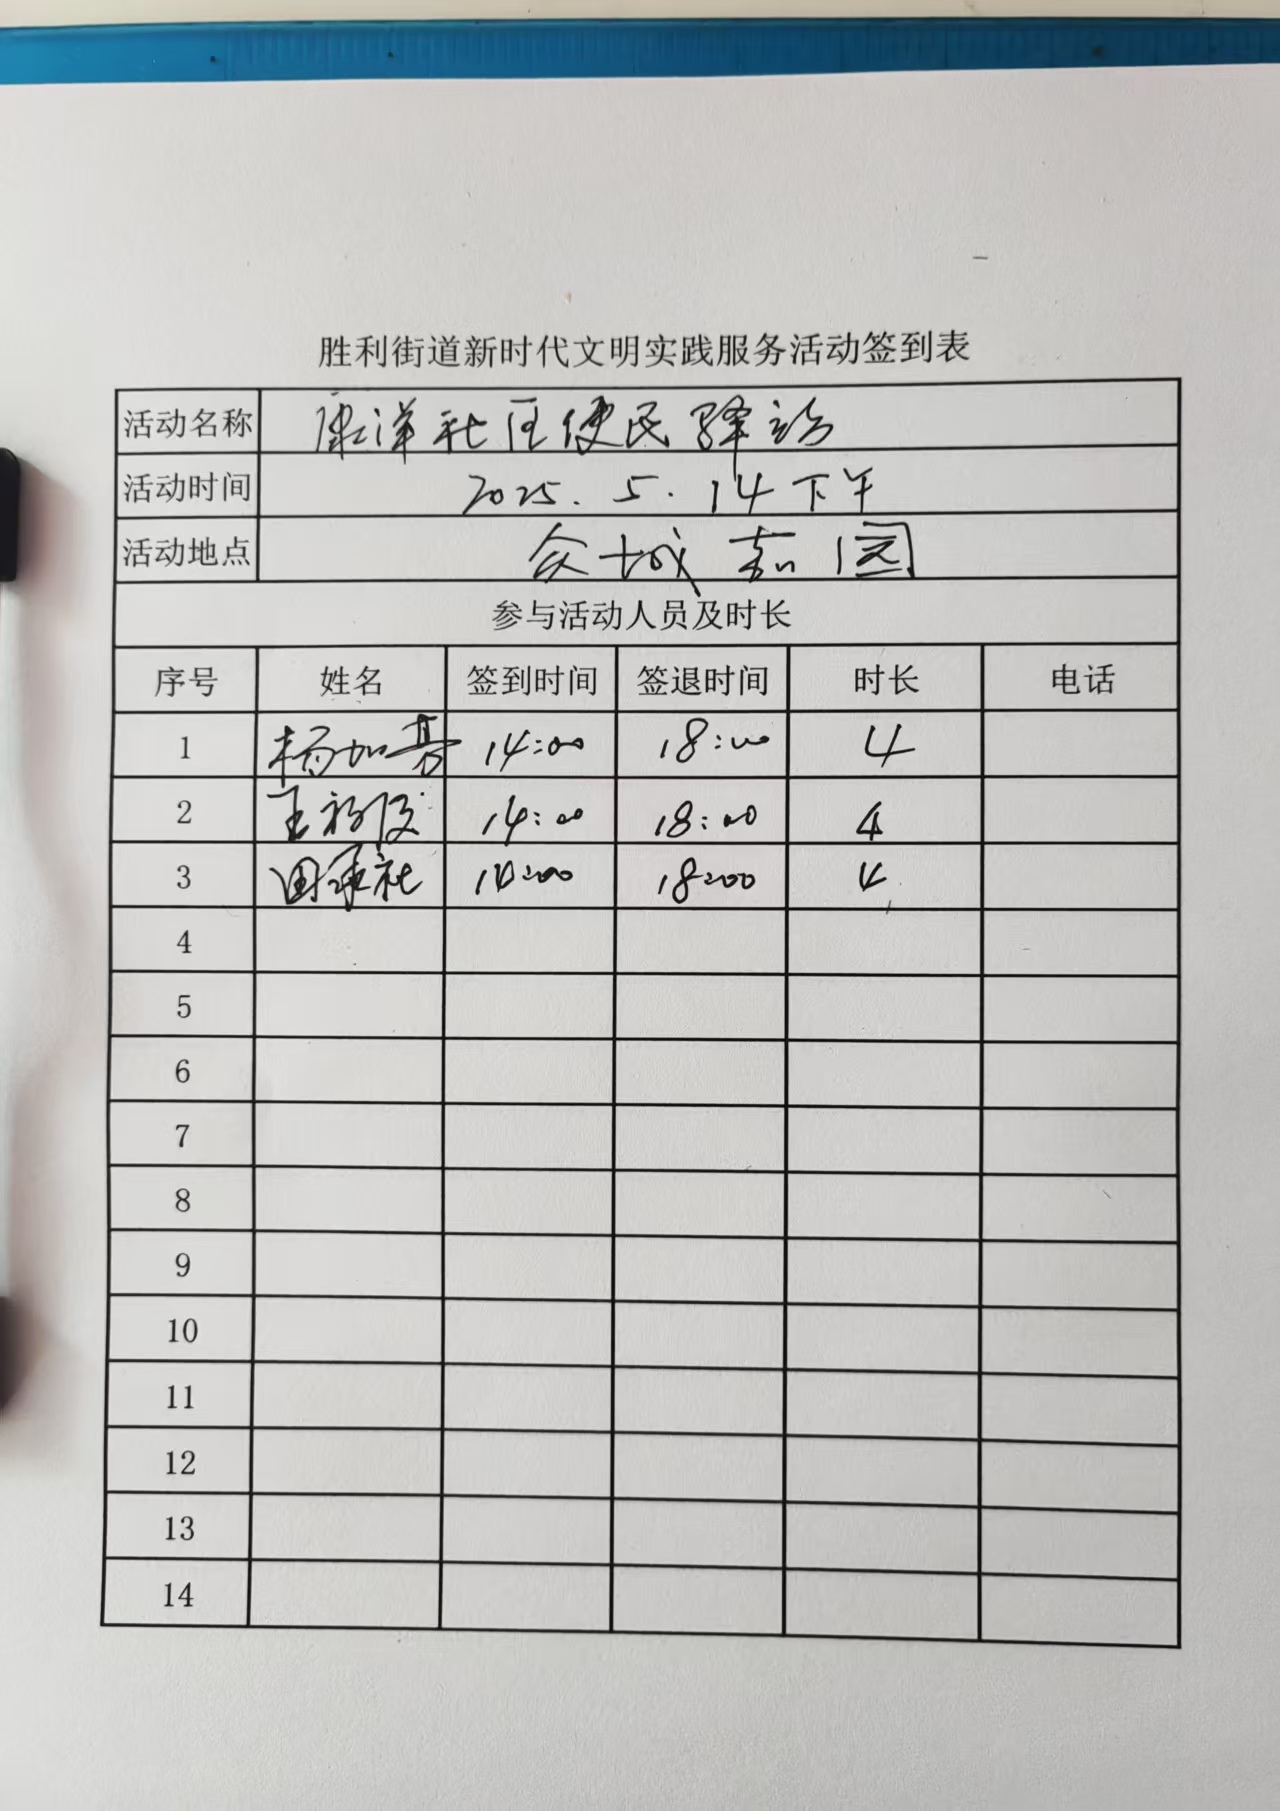 胜利街道新时代文明实践服务活动签到表
活动名称 康洋社区便民驿站
活动时间 2025.5.14下午
活动地点 众城嘉园
参与活动人员及时长
序号 姓名 签到时间 签退时间 时长 电话
1 杨加芬 14:00 18:00 4
2 王 14:00 18:00 4
3 田承社 14:00 18:00 4
4
5
6
7
8
9
10
11
12
13
14